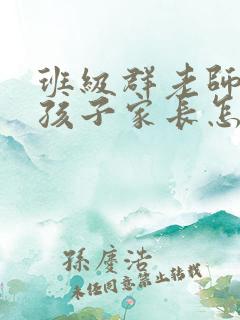 班級群老師
孩子家長怎
孫慶浩
未经同意禁止转载